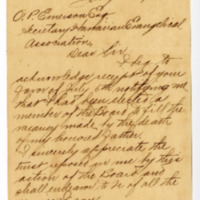 O. P. Emerson Esq.
Secretary Hawaiian Evangelical
Association.
Dear Sir
I beg to
acknowledge receipt of your
favor of July 6th notifying me
that I had been elected a
member of the Board to fill the
vacancy made by the death
of my honored father.
I sincerely appreciate the
trust reposed in me by this
action of the Board and
shall endeavor to be of all the